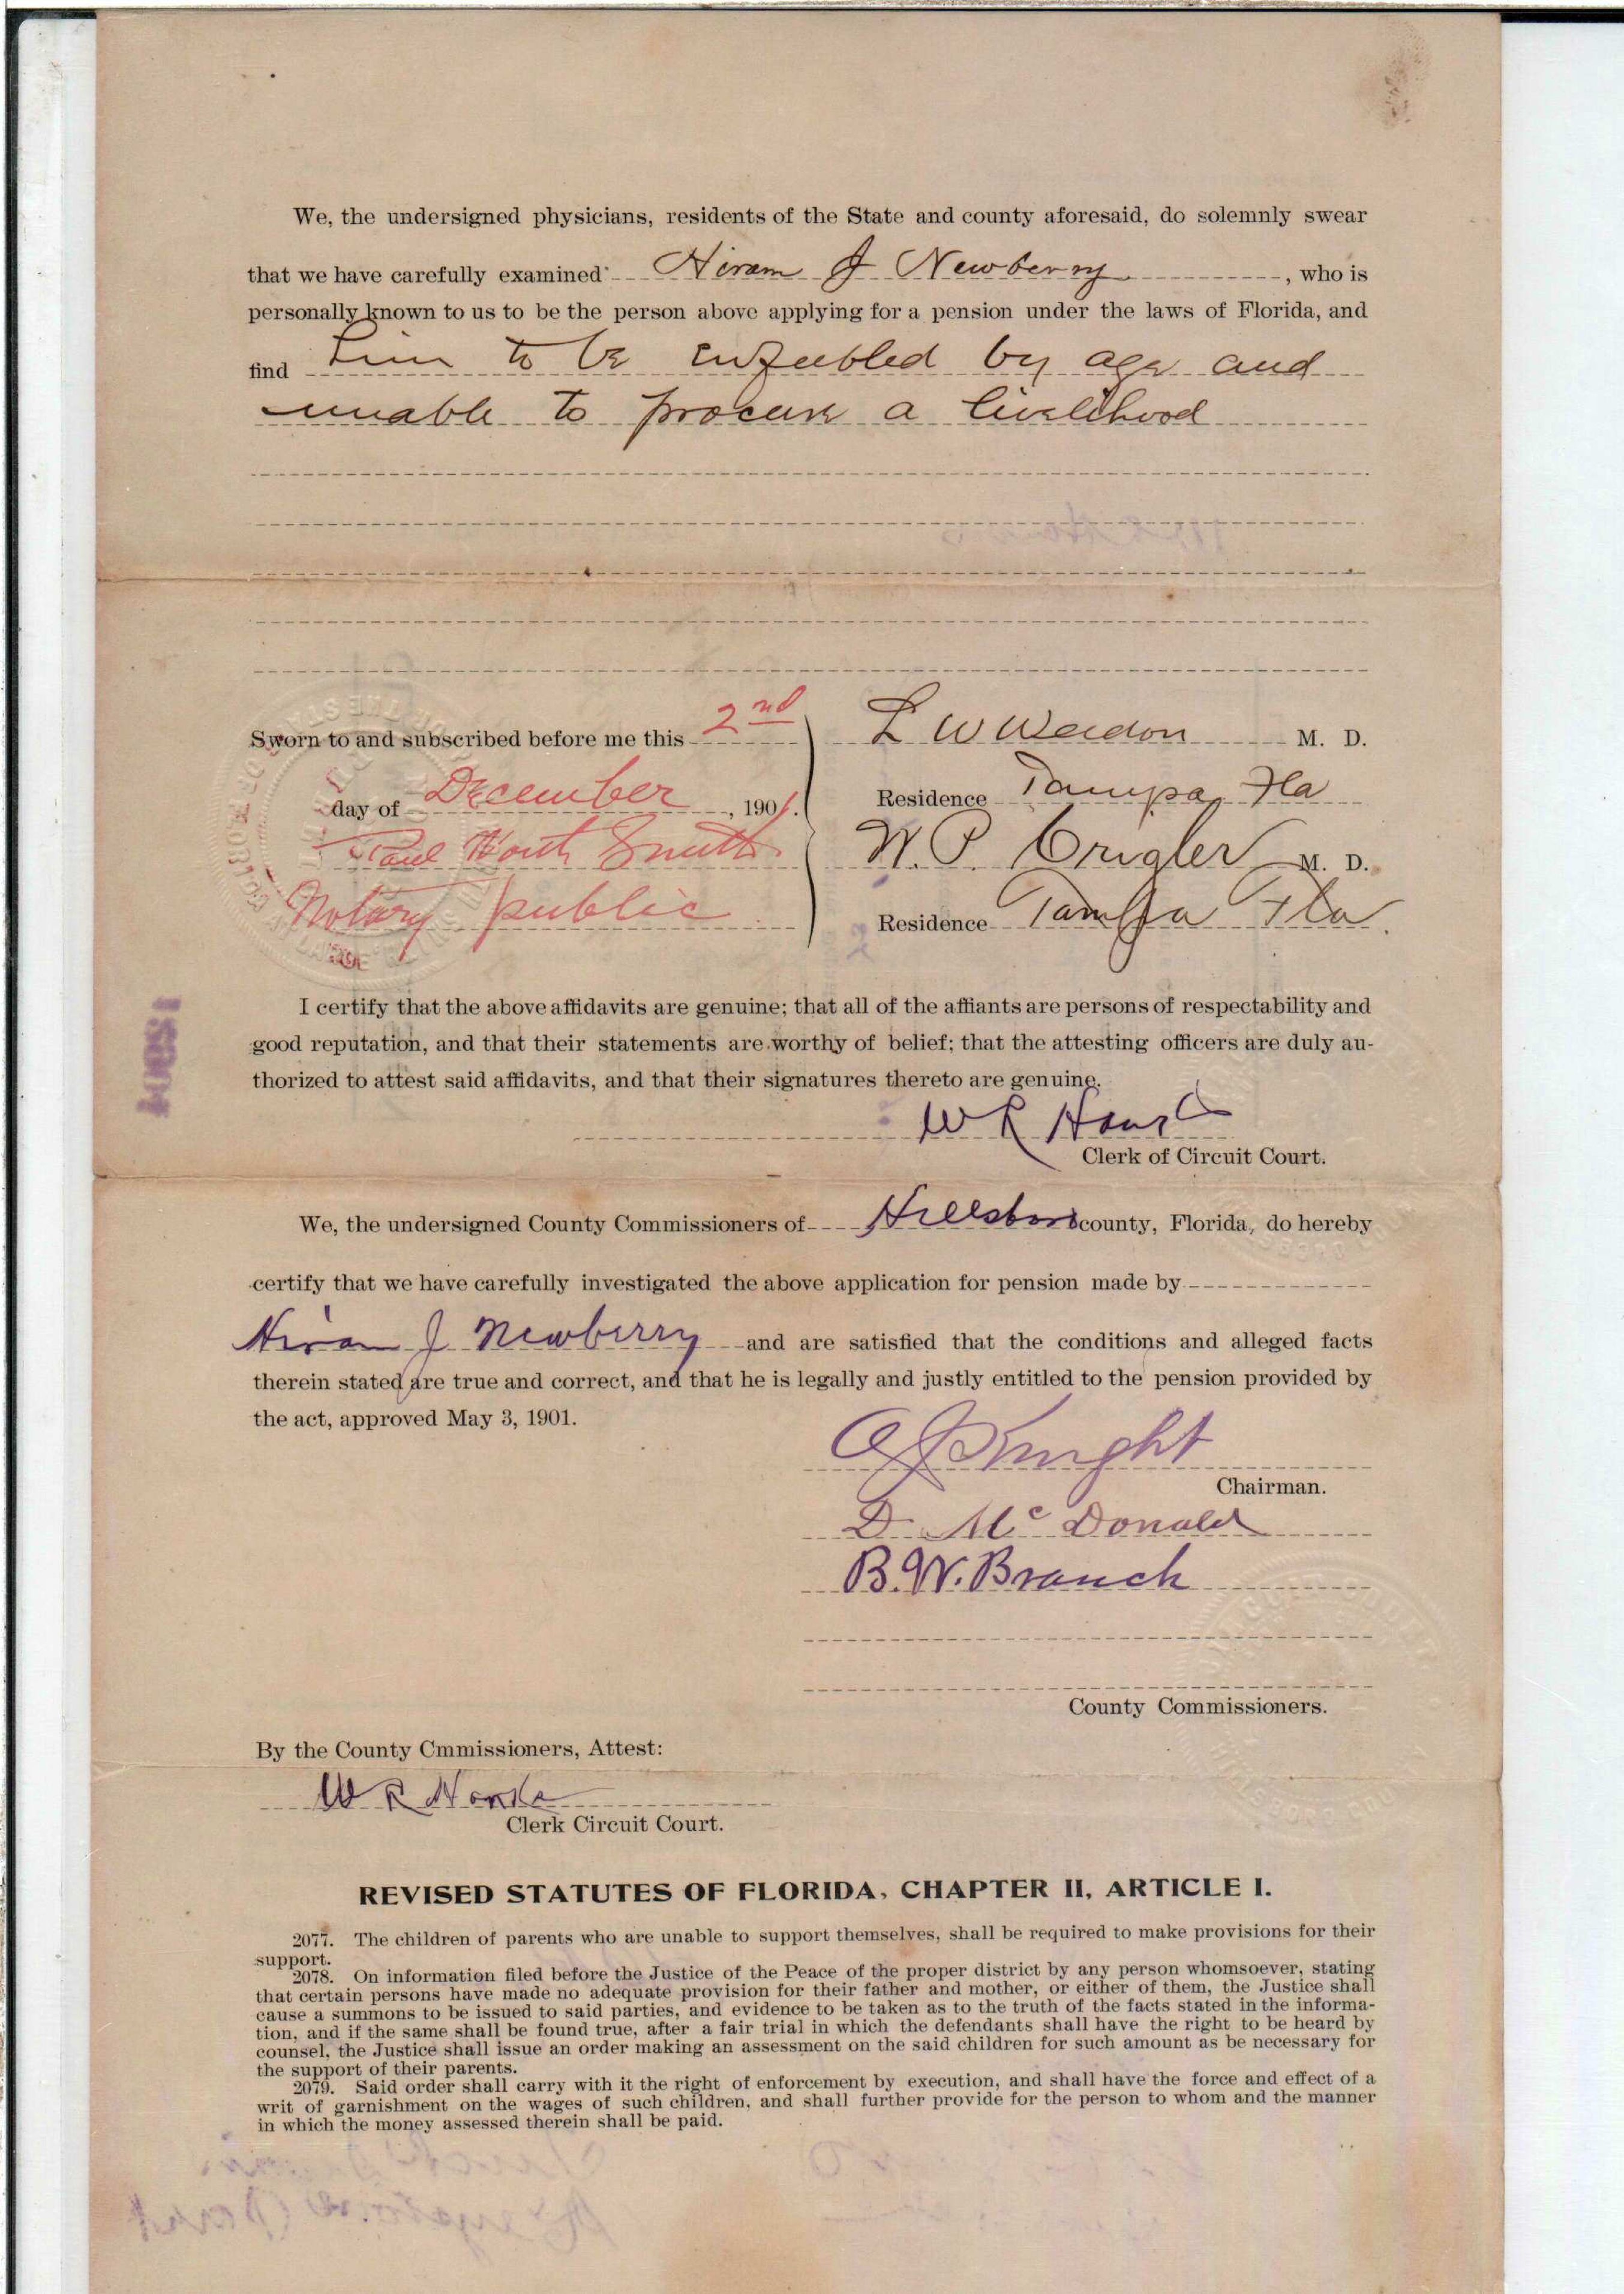 We, the undersigned physicians, residents of the State and county aforesaid, do solemnly swear
that we have carefully examined Hiram J Newberry, who is
personally known to us to be the person above applying for a pension under the laws of Florida, and
find him to be enfeebled by age and
unable to procure a livelihood
Sworn to and subscribed before me this 2nd
day of December, 1901.
Paul Worth Smith
Notary public
L W Weedon M. D.
Residence Tampa, Fla
W. P. Crigler M. D.
Residence Tampa Fla.
I certify that the above affidavits are genuine; that all of the affiants are persons of respectability and
good reputation, and that their statements are worthy of belief; that the attesting officers are duly au-
thorized to attest said affidavits, and that their signatures thereto are genuine.
W R
Clerk of Circuit Court.
We, the undersigned County Commissioners of Hillsboro county, Florida, do hereby
certify that we have carefully investigated the above application for pension made by
Hiram J Newberry and are satisfied that the conditions and alleged facts
therein stated are true and correct, and that he is legally and justly entitled to the pension provided by
the act, approved May 3, 1901.
Knight
Chairman.
D. McDonald
B. W. Branch
County Commissioners.
By the County Cmmissioners, Attest:
W R
Clerk Circuit Court.
REVISED STATUTES OF FLORIDA, CHAPTER II, ARTICLE I.
2077. The children of parents who are unable to support themselves, shall be required to make provisions for their
support.
2078. On information filed before the Justice of the Peace of the proper district by any person whomsoever, stating
that certain persons have made no adequate provision for their father and mother, or either of them, the Justice shall
cause a summons to be issued to said parties, and evidence to be taken as to the truth of the facts stated in the informa-
tion, and if the same shall be found true, after a fair trial in which the defendants shall have the right to be heard by
counsel, the Justice shall issue an order making an assessment on the said children for such amount as be necessary for
the support of their parents.
2079. Said order shall carry with it the right of enforcement by execution, and shall have the force and effect of a
writ of garnishment on the wages of such children, and shall further provide for the person to whom and the manner
in which the money assessed therein shall be paid.